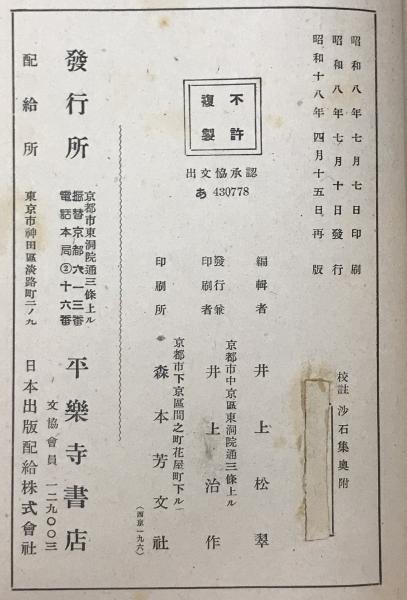 昭和八年七月七日印刷
昭和八年七月十日發行
昭和十八年四月十五日再版
校註 沙石集奥附
不許
複製
出文協承認
あ430778
編輯者 井上松翠
京都市中京區東洞院通三條上ル
發行兼
印刷者 井上治作
京都市下京區間之町花屋町下ル
印刷所 森本芳文社
(西京一九六)
發行所
京都市東洞院通三條上ル
振替京都六一三番
電話本局②十六番
平樂寺書店
文協會員 一二九〇〇三
配給所
東京市神田區淡路町二ノ九
日本出版配給株式會社